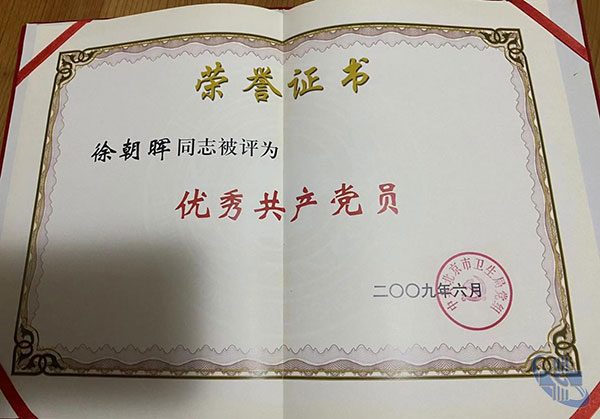 荣誉证书
徐朝晖同志被评为
优秀共产党员
中共北京市卫生局党组
二〇〇九年六月